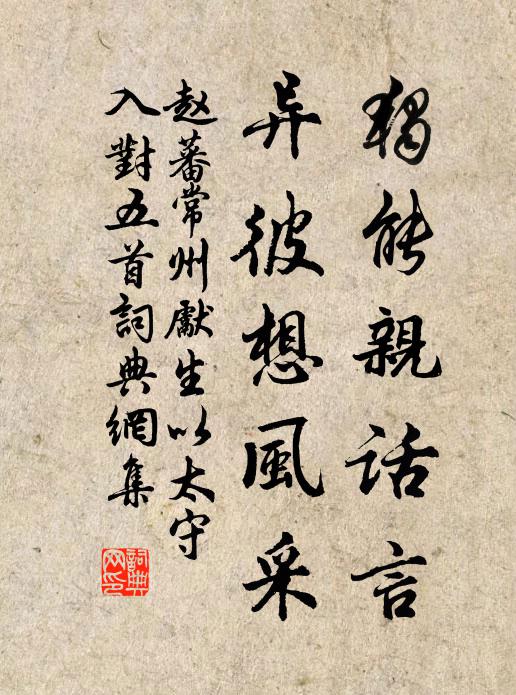 獨能親話言
异彼想風采
赵蕃常州獻生以太守
入對五首詞典網集
詞典网印